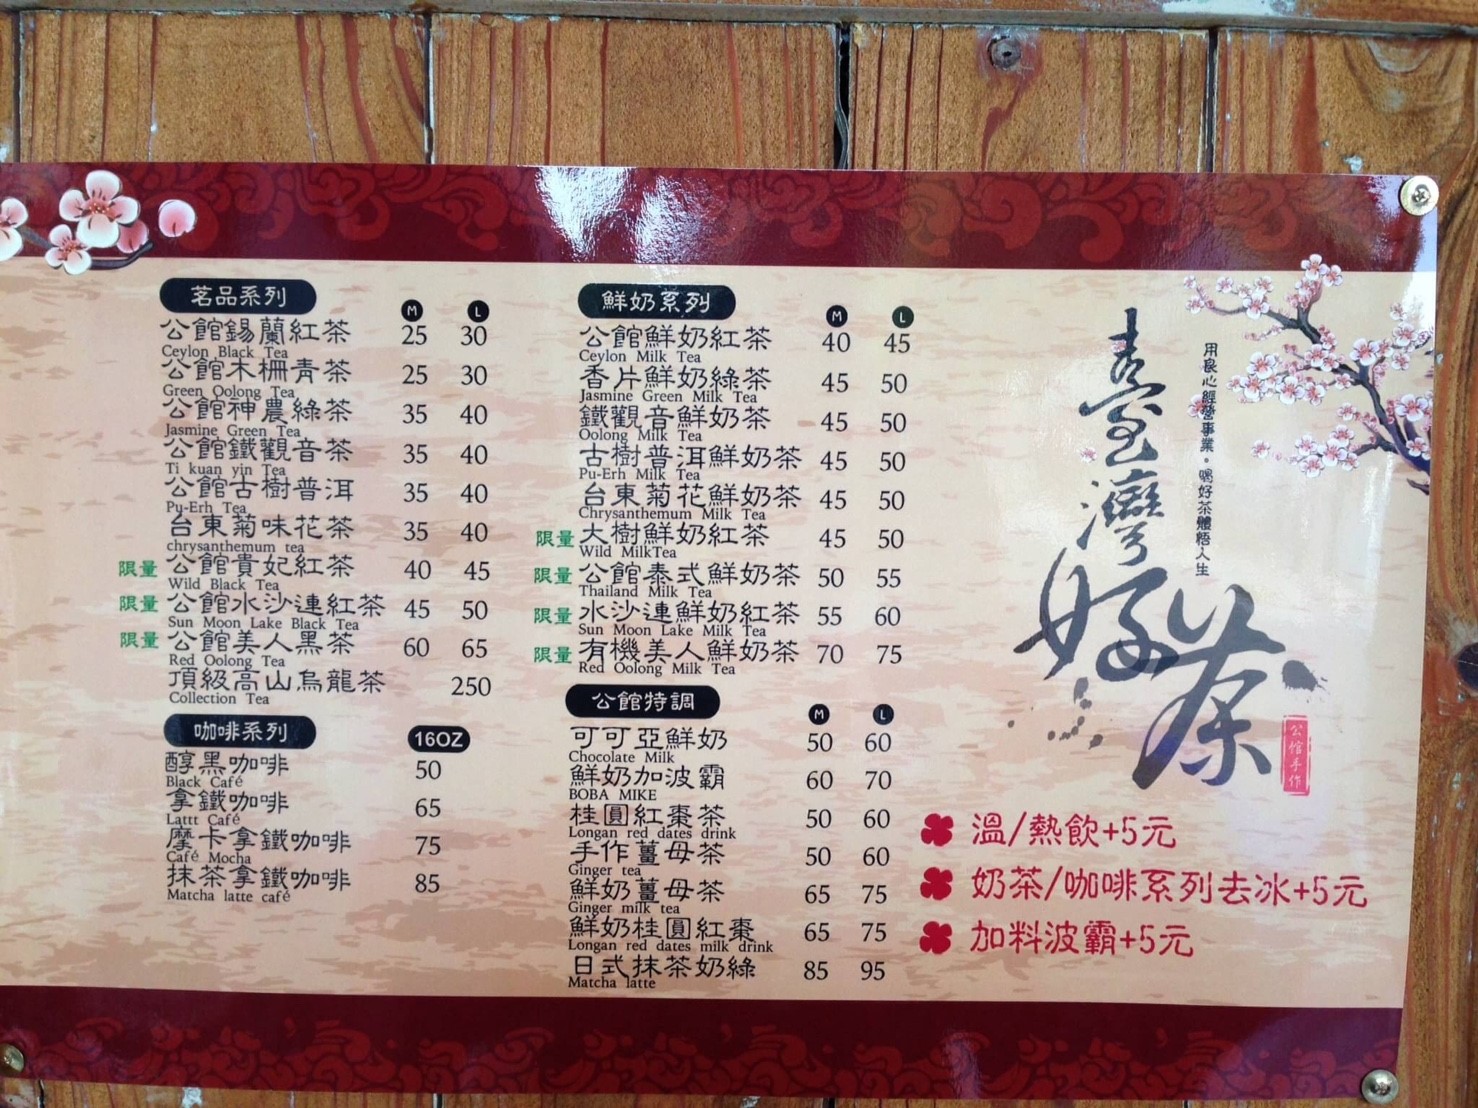 茗品系列 M L
公館錫蘭紅茶 25 30
Ceylon Black Tea
公館木柵青茶 25 30
Green Oolong Tea
公館神農綠茶 35 40
Jasmine Green Tea
公館鐵觀音茶 35 40
Ti kuan yin Tea
公館古樹普洱 35 40
Pu-Erh Tea
台東菊味花茶 35 40
chrysanthemum tea
限量 公館貴妃紅茶 40 45
Wild Black Tea
限量 公館水沙連紅茶 45 50
Sun Moon Lake Black Tea
限量 公館美人黑茶 60 65
Red Oolong Tea
頂級高山烏龍茶 250
Collection Tea
咖啡系列 16OZ
醇黑咖啡 50
Black Café
拿鐵咖啡 65
Lattt Café
摩卡拿鐵咖啡 75
Café Mocha
抹茶拿鐵咖啡 85
Matcha latte café
鮮奶系列 M L
公館鮮奶紅茶 40 45
Ceylon Milk Tea
香片鮮奶綠茶 45 50
Jasmine Green Milk Tea
鐵觀音鮮奶茶 45 50
Oolong Milk Tea
古樹普洱鮮奶茶 45 50
Pu-Erh Milk Tea
台東菊花鮮奶茶 45 50
Chrysanthemum Milk Tea
限量 大樹鮮奶紅茶 45 50
Wild MilkTea
限量 公館泰式鮮奶茶 50 55
Thailand Milk Tea
限量 水沙連鮮奶紅茶 55 60
Sun Moon Lake Milk Tea
限量 有機美人鮮奶茶 70 75
Red Oolong Milk Tea
公館特調 M L
可可亞鮮奶 50 60
Chocolate Milk
鮮奶加波霸 60 70
BOBA MIKE
桂圓紅棗茶 50 60
Longan red dates drink
手作薑母茶 50 60
Ginger tea
鮮奶薑母茶 65 75
Ginger milk tea
鮮奶桂圓紅棗 65 75
Longan red dates milk drink
日式抹茶奶綠 85 95
Matcha latte
臺灣好茶
用良心經營事業。喝好茶體悟人生
公館手作
溫/熱飲+5元
奶茶/咖啡系列去冰+5元
加料波霸+5元